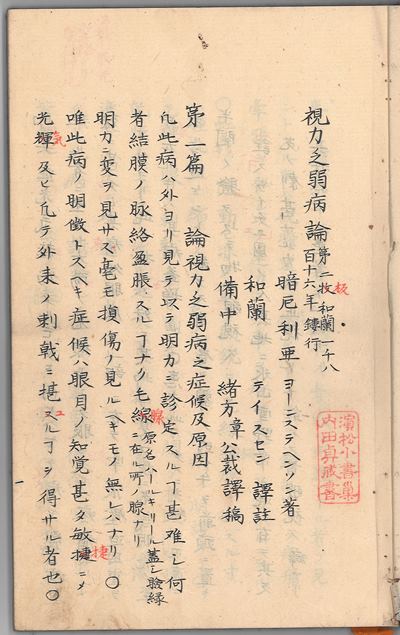 視力之弱病論 第二板 和蘭一千八百十六年鏤行
暗厄利亜 ヨーンステヘンソン著
和蘭 テイスセン 譯註
備中 緒方章公裁譯稿
第一篇 論視力之弱病之症候及原因
凡此病ハ外ヨリ見テ以テ明カニ診定スルヿ甚難シ何
者結膜ノ脉絡盈脹スルヿナク毛線 原名ハールキリール蓋シ瞼縁ニ在ル所ノ腺ナリ 腺
明カニ変ヲ見サス毫モ損傷ノ見ルヘキモノ無レハナリ〇
唯此病ノ明徴トスヘキ症候ハ眼目ノ知覚甚タ敏捷ニメ 捷
光輝 氣 及ヒ凡テ外来ノ刺戟ニ堪ユルヿヲ得サル者也〇
濱松小書巣
内田真蔵書